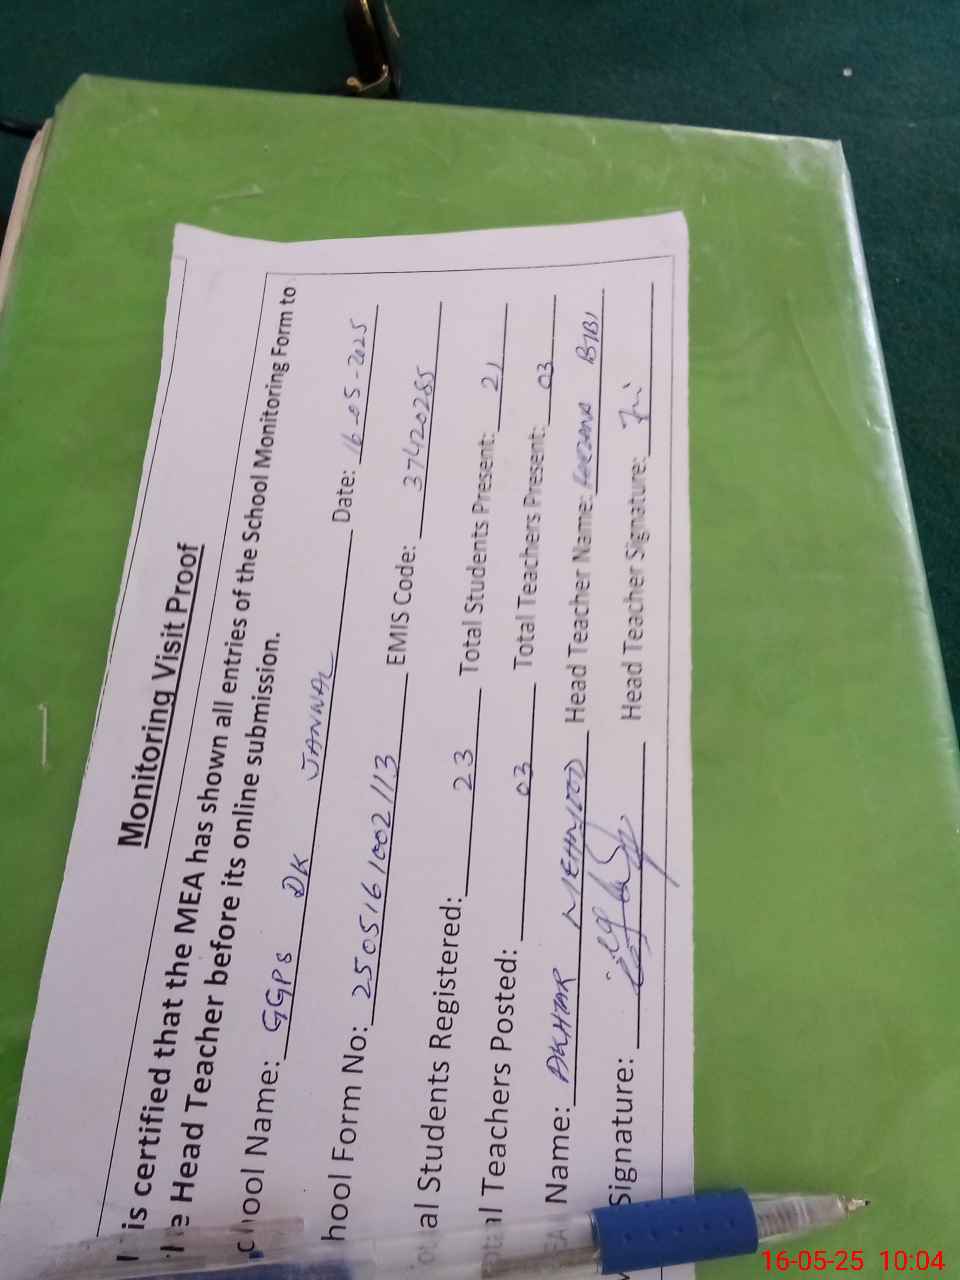 Monitoring Visit Proof
is certified that the MEA has shown all entries of the School Monitoring Form to
Head Teacher before its online submission.
School Name: GGPS DK JANNAL Date: 16-05-2025
hool Form No: 2505161002113 EMIS Code: 37420285
al Students Registered: 23 Total Students Present: 21
al Teachers Posted: 03 Total Teachers Present: 03
EA Name: AKHTAR MEHMOOD Head Teacher Name: BIBI
Signature: Head Teacher Signature:
16-05-25 10:04